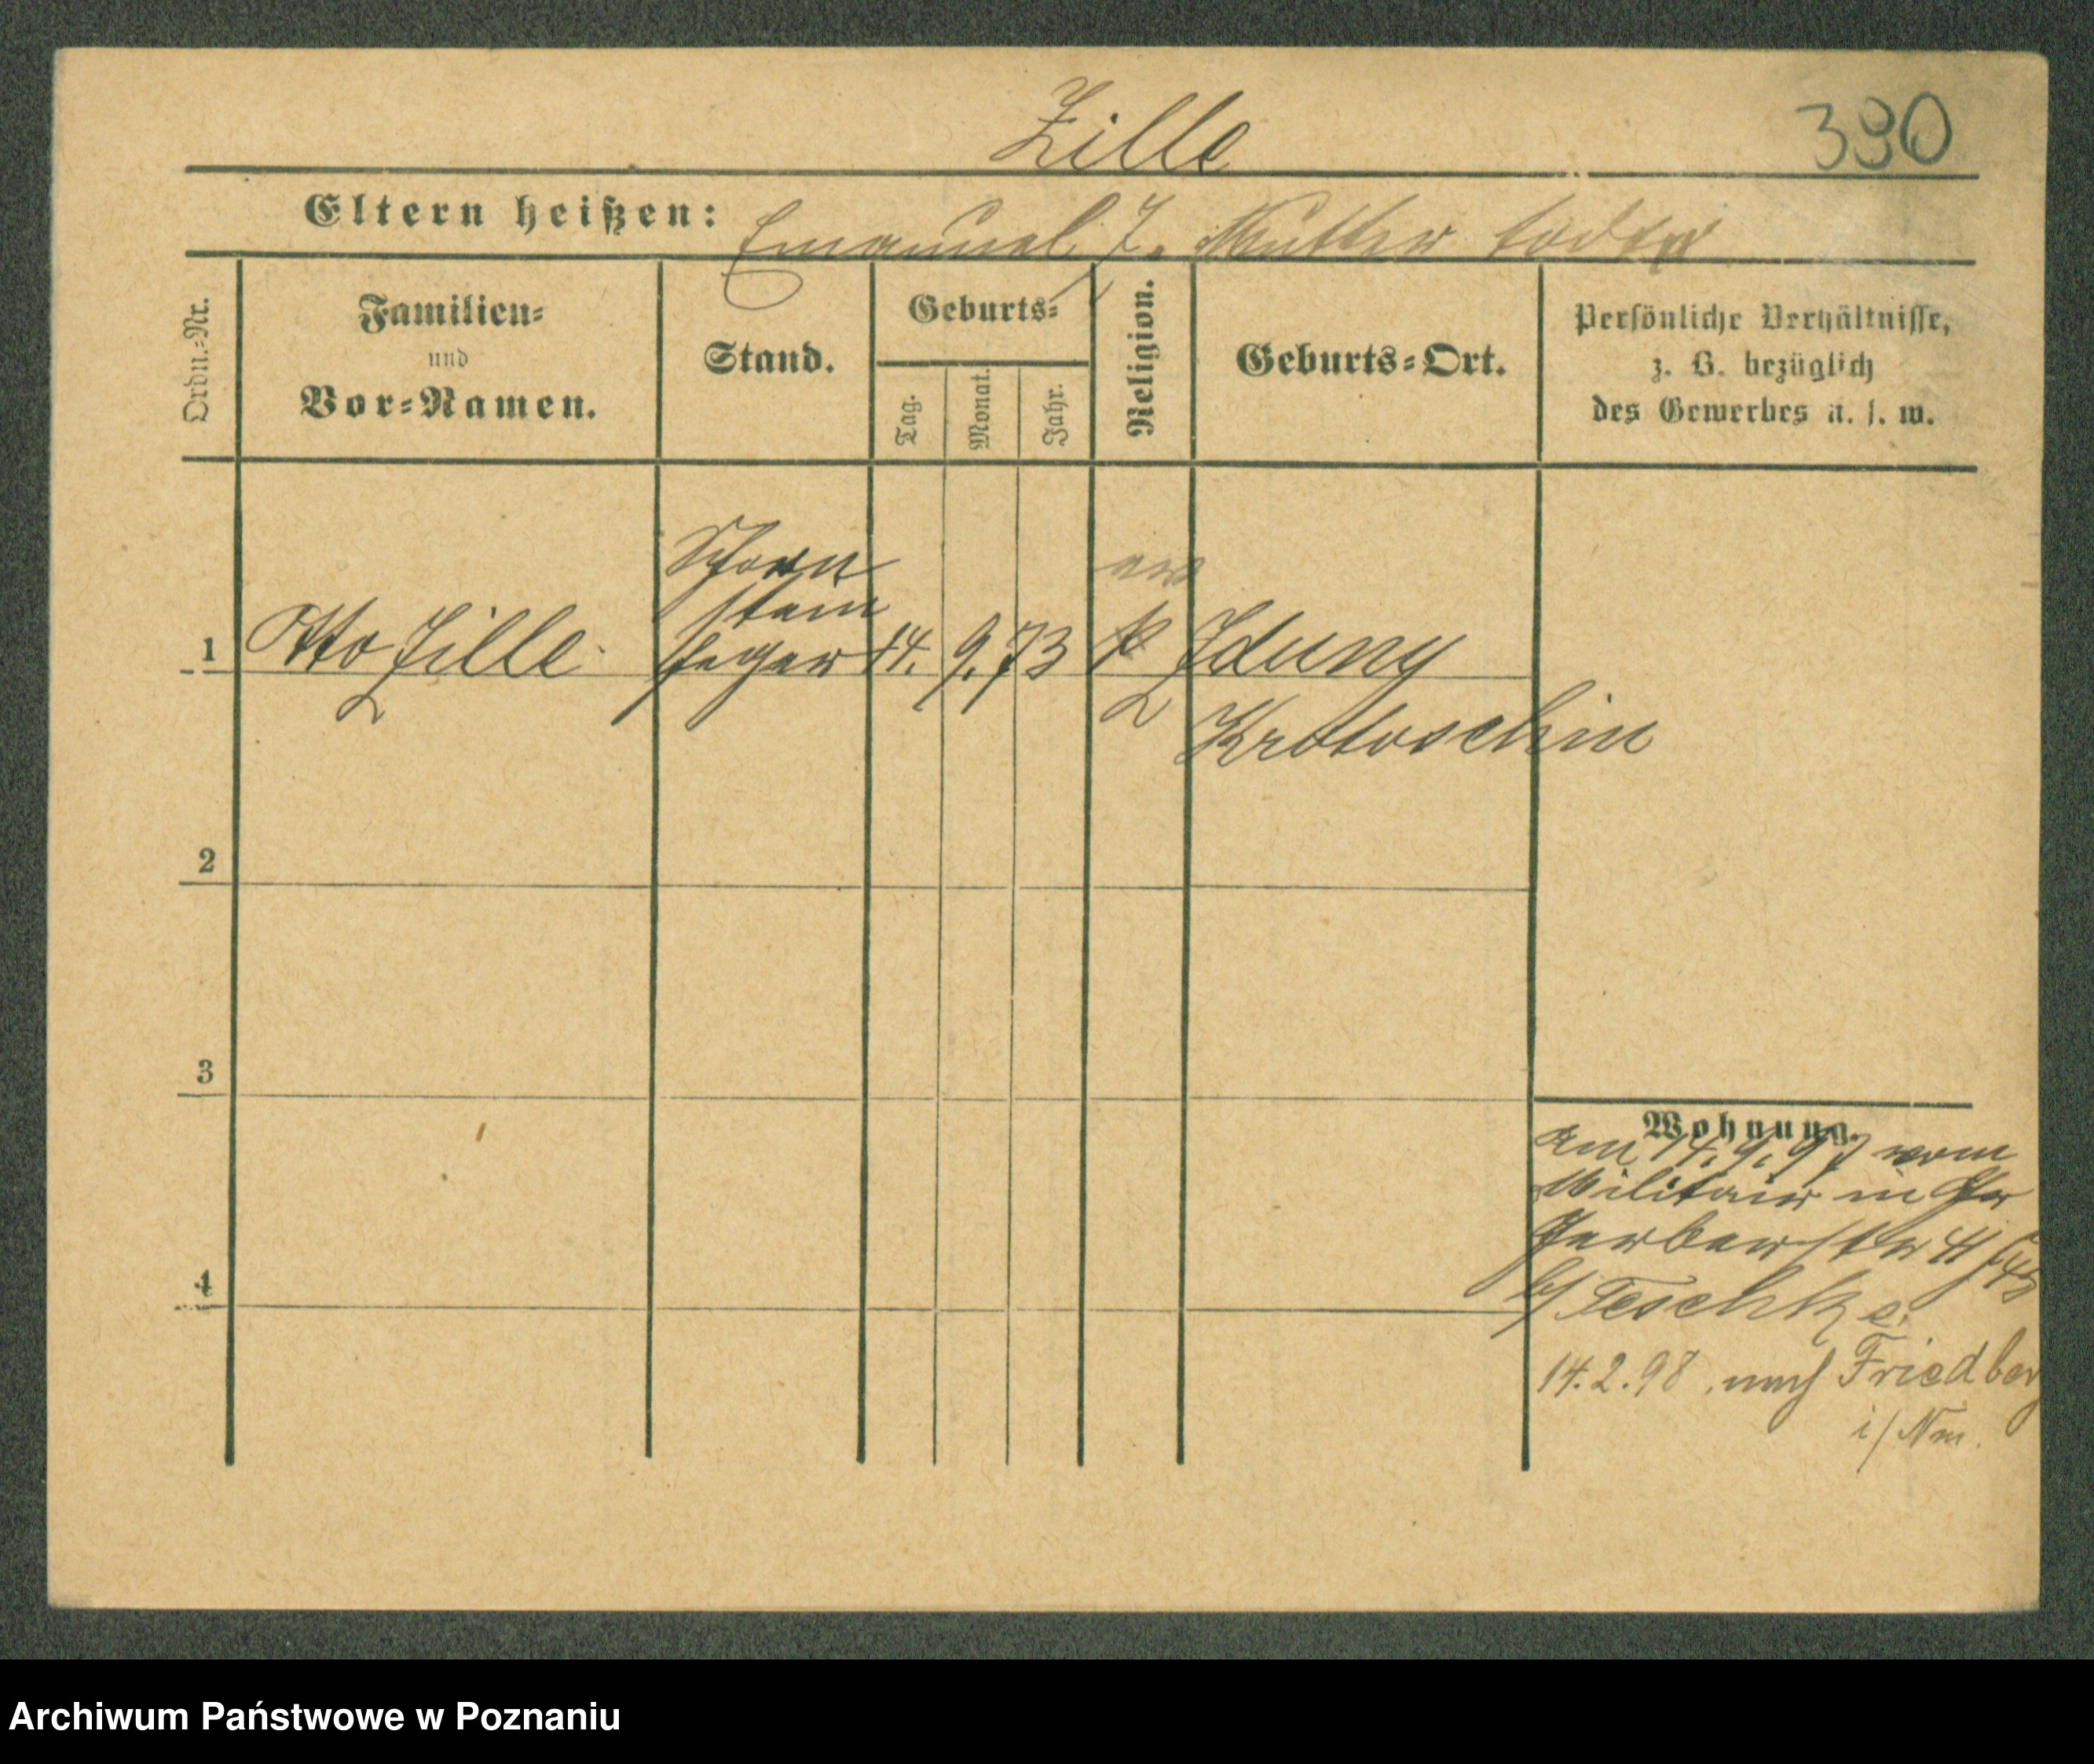 Zille
390
Eltern heißen: Emanuel Z. Mutter todt
Ordn.-Nr.
Familien-
und
Vor-Namen.
Stand.
Geburts-
Tag.
Monat.
Jahr.
Religion.
Geburts-Ort.
Persönliche Verhältnisse,
z. B. bezüglich
des Gewerbes u. s. w.
1 Otto Zille
Schorn
stein
feger
14. 9. 73
ev
k
Zduny
Krotoschin
2
3
4
Wohnung.
Am 14.9.97 vom
Militair in
Gerberstr 4
b/ Teschke.
14.2.98. nach Friedberg
i/Nm.
Archiwum Państwowe w Poznaniu